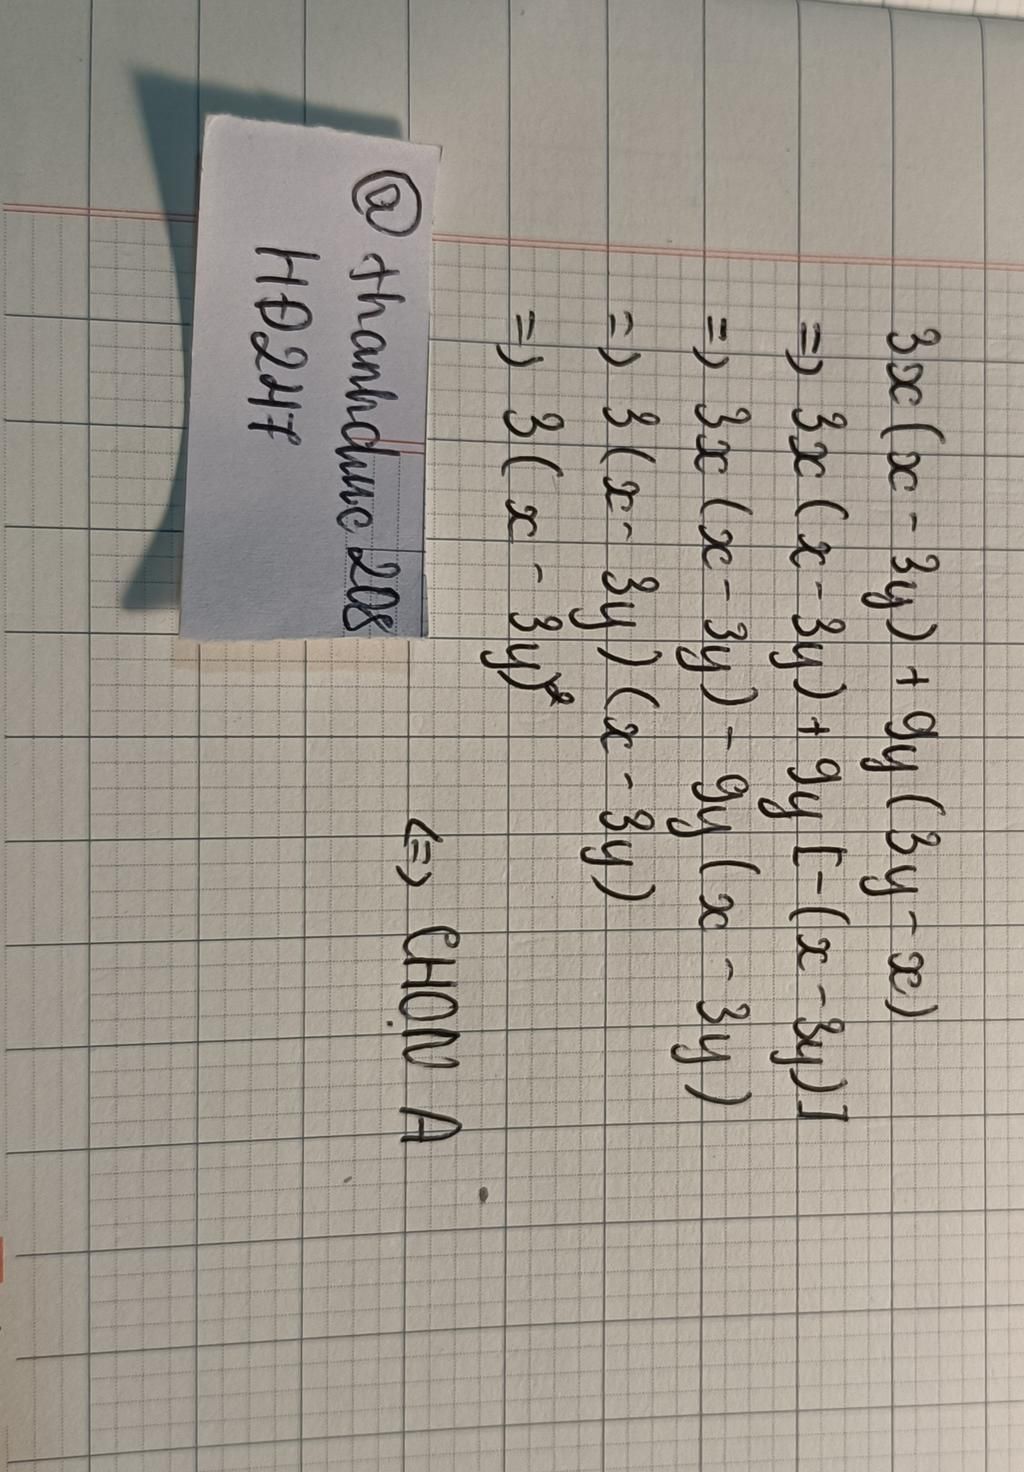 3x(x - 3y) + 9y(3y - x)
=) 3x(x - 3y) + 9y[-(x - 3y)]
=) 3x(x - 3y) - 9y(x - 3y)
=) 3(x - 3y)(x - 3y)
=) 3(x - 3y)²
<=) CHỌN A
@thanhduc208
HĐ247